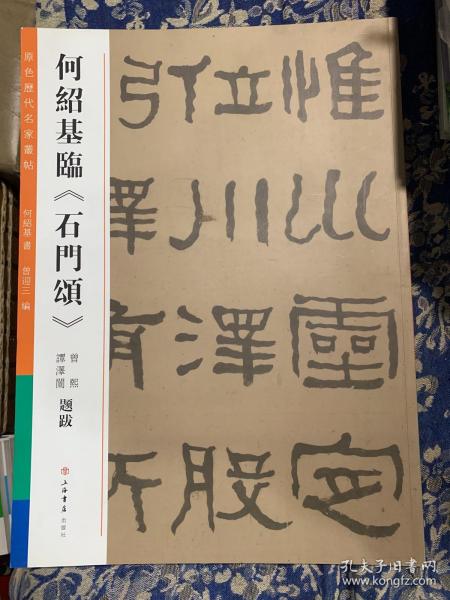 原色歷代名家叢帖
何紹基書 曾迎三 編
何紹基臨《石門頌》
曾熙
譚澤闓
題跋
上海書店
出版社
惟巛靈定
位川澤股
引
澤有所
孔夫子旧书网
kongfz.com